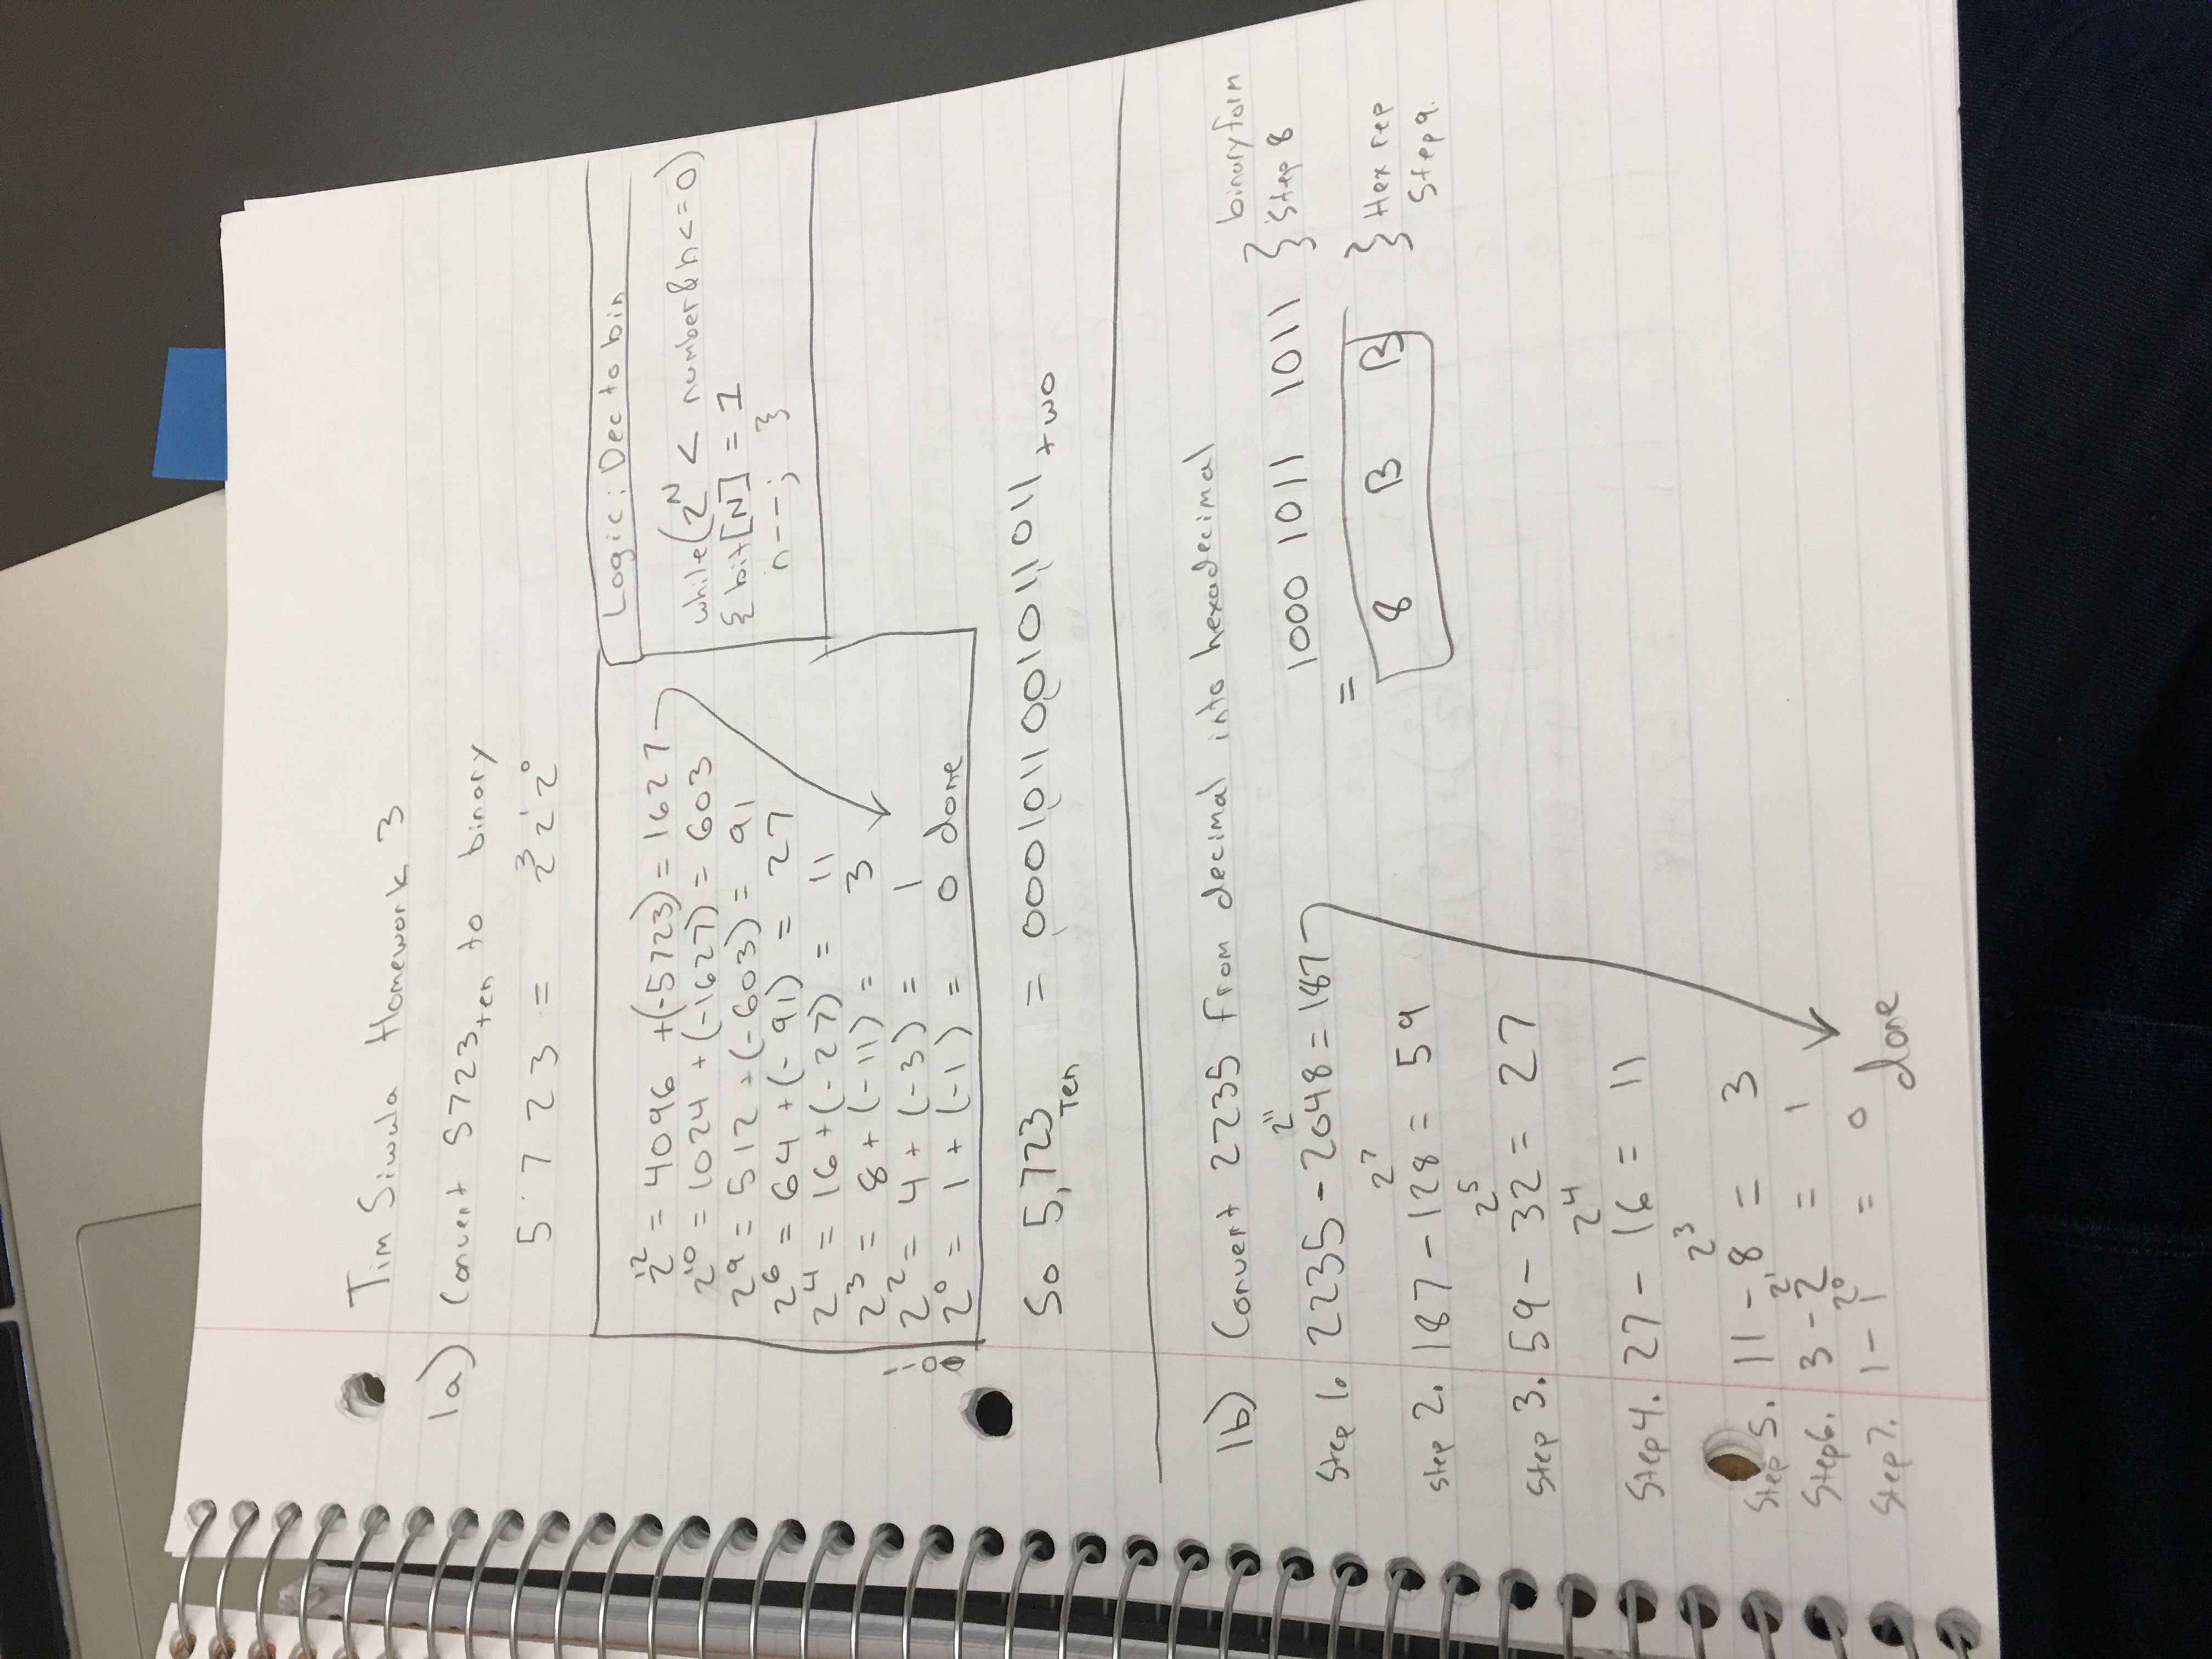 Tim Siwula Homework 3
1a) Convert 5723ten to binary
5 7 2 3 = 2³ 2¹ 2⁰
2¹² = 4096 +(-5723) = 1627
2¹⁰ = 1024 +(-1627) = 603
2⁹ = 512 +(-603) = 91
2⁶ = 64 +(-91) = 27
2⁴ = 16 +(-27) = 11
2³ = 8 + (-11) = 3
2² = 4 + (-3) = 1
2⁰ = 1 + (-1) = 0 done
Logic: Dec to bin
while(2ᴺ < number & n <= 0)
{ bit[N] = 1
n--; }
So 5,723Ten = 0001011001011011two
1b) Convert 2235 from decimal into hexadecimal
Step 1. 2235 - 2048 = 187
2¹¹
step 2. 187 - 128 = 59
2⁷
Step 3. 59 - 32 = 27
2⁵
Step 4. 27 - 16 = 11
2⁴
Step 5. 11 - 8 = 3
2³
Step 6. 3 - 2 = 1
2¹
Step 7. 1 - 1 = 0
2⁰
done
1000 1011 1011 } binary form
Step 8
=
8 B B } Hex rep
Step 9.